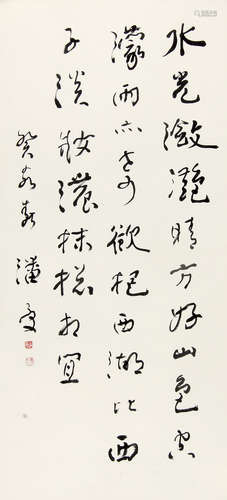 水光瀲灧晴方好山色空
濛雨亦奇欲把西湖比西
子淡妝濃抹總相宜
癸亥春 潘受